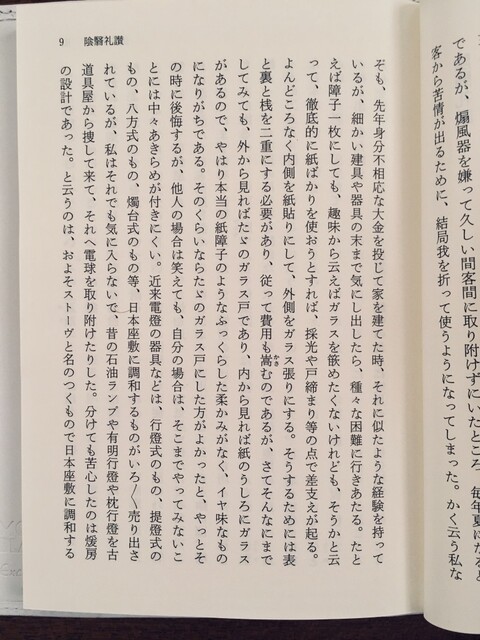 であるが、煽風器を嫌って久しい間客間に取り附けずにいたところ、毎年夏になると
客から苦情が出るために、結局我を折って使うようになってしまった。かく云う私な
9 陰翳礼讃
ぞも、先年身分不相応な大金を投じて家を建てた時、それに似たような経験を持って
いるが、細かい建具や器具の末まで気にし出したら、種々な困難に行きあたる。たと
えば障子一枚にしても、趣味から云えばガラスを嵌めたくないけれども、そうかと云
って、徹底的に紙ばかりを使おうとすれば、採光や戸締まり等の点で差支えが起る。
よんどころなく内側を紙貼りにして、外側をガラス張りにする。そうするためには表
と裏と桟を二重にする必要があり、従って費用も嵩むのであるが、さてそんなにまで
かさ
してみても、外から見ればたゞのガラス戸であり、内から見れば紙のうしろにガラス
があるので、やはり本当の紙障子のようなふっくらした柔かみがなく、イヤ味なもの
になりがちである。そのくらいならたゞのガラス戸にした方がよかったと、やっとそ
の時に後悔するが、他人の場合は笑えても、自分の場合は、そこまでやってみないこ
とには中々あきらめが付きにくい。近来電燈の器具などは、行燈式のもの、提燈式の
もの、八方式のもの、燭台式のもの等、日本座敷に調和するものがいろ〳〵売り出さ
れているが、私はそれでも気に入らないで、昔の石油ランプや有明行燈や枕行燈を古
道具屋から捜して来て、それへ電球を取り附けたりした。分けても苦心したのは煖房
の設計であった。と云うのは、およそストーヴと名のつくもので日本座敷に調和する